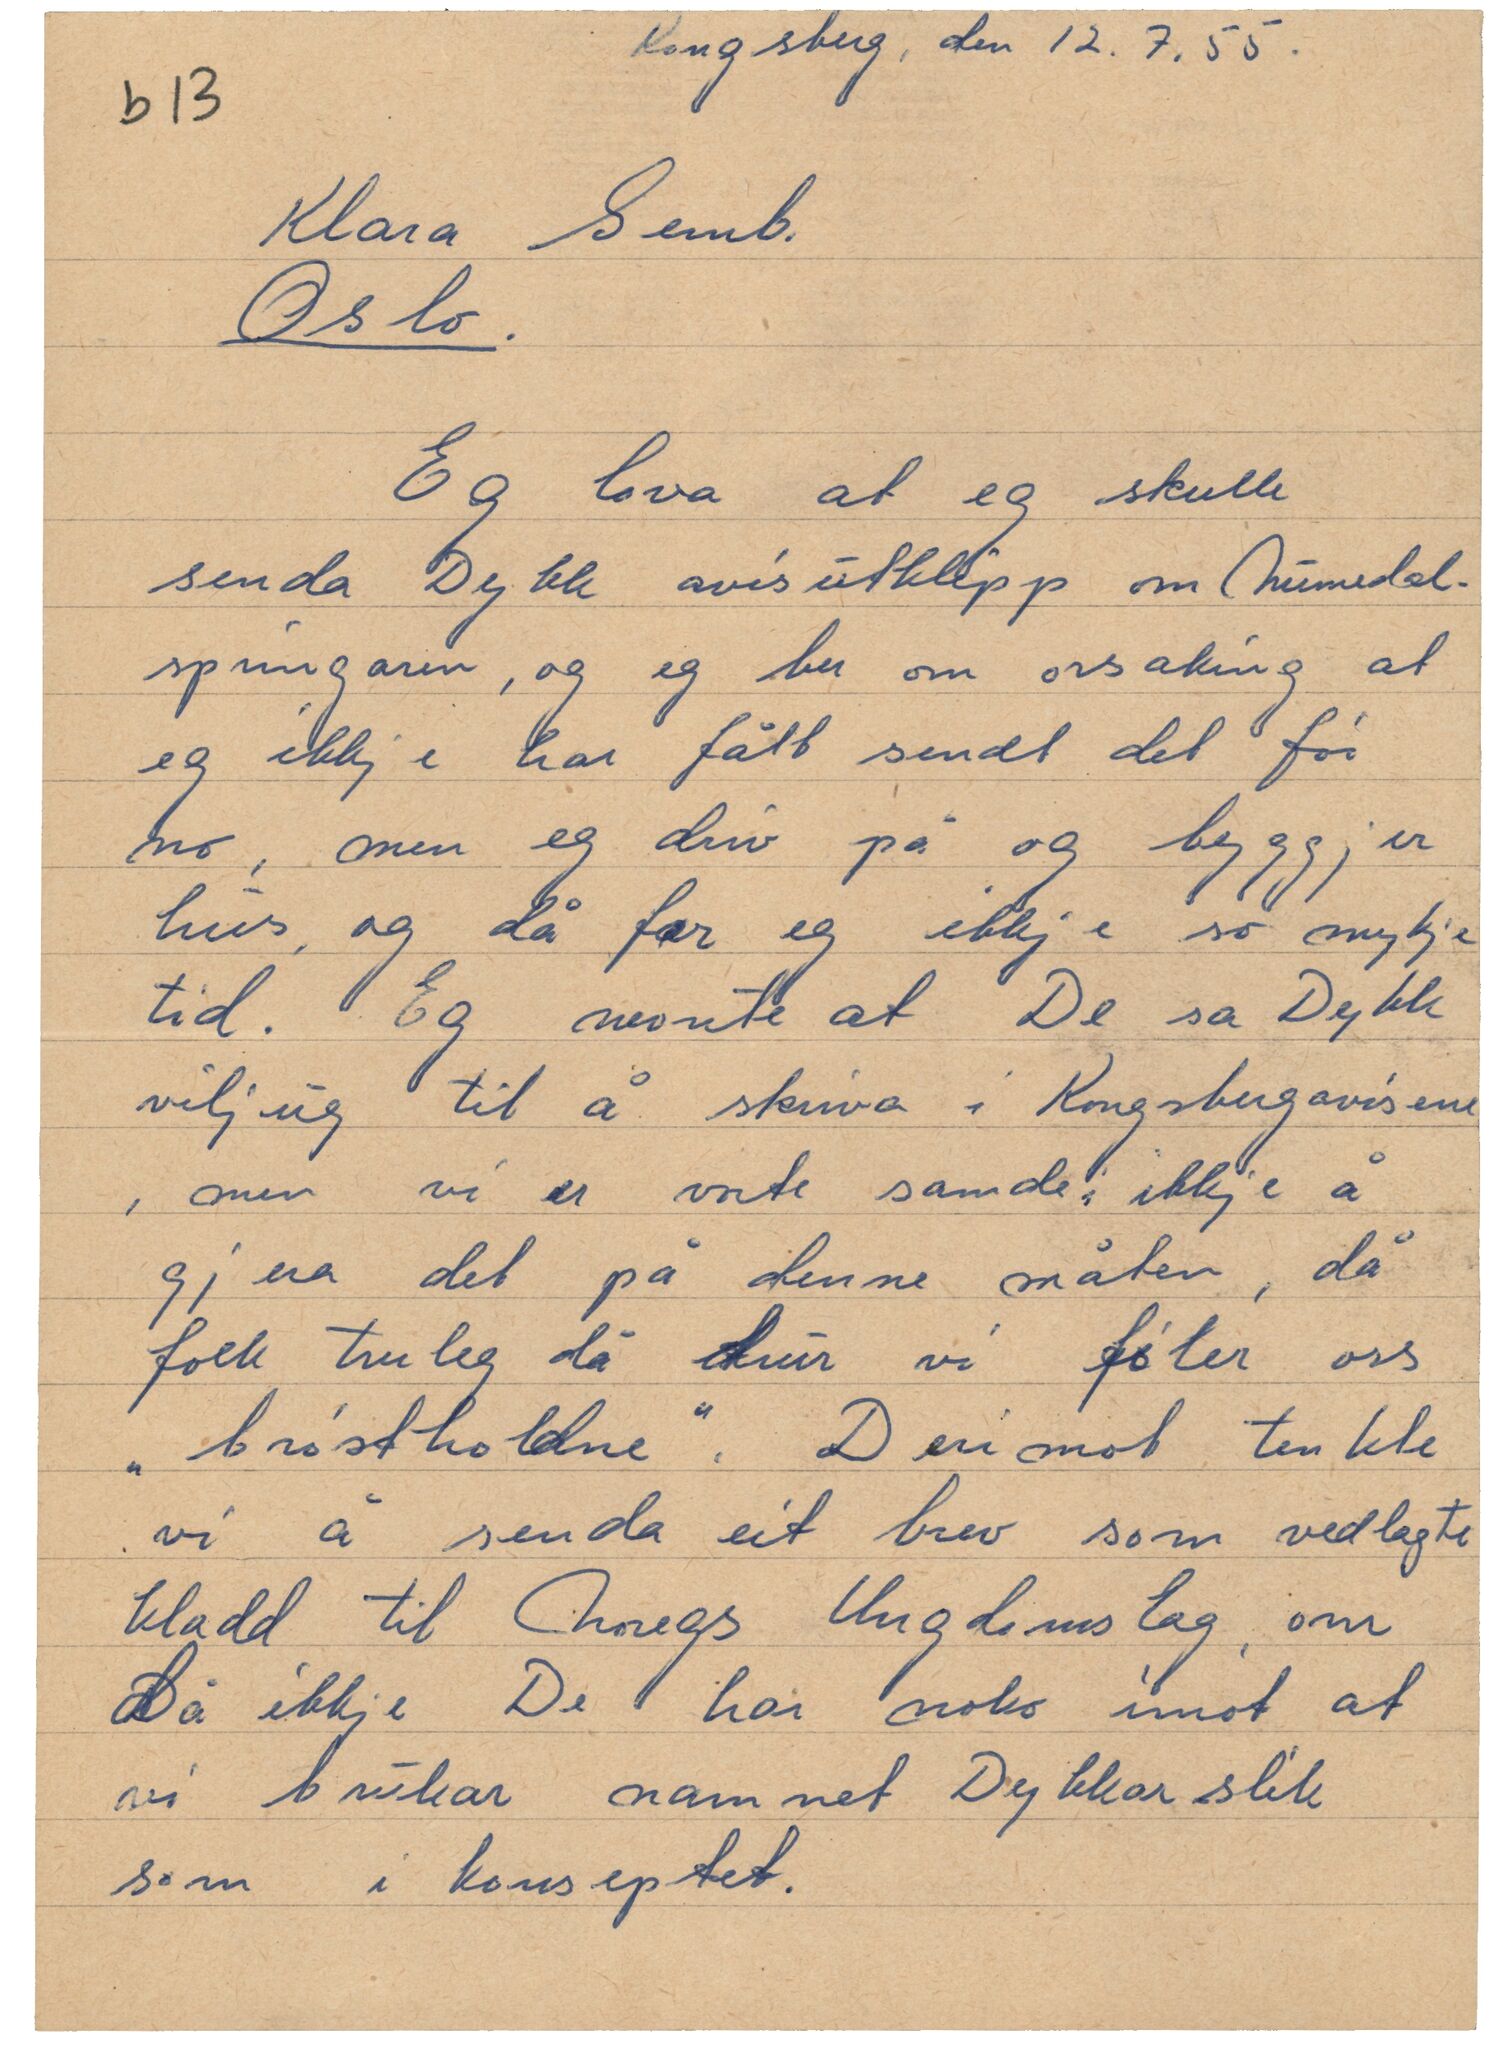 Kongsberg, den 12.7.55.
b13
Klara Semb.
Oslo.
Eg lova at eg skulle
senda Dykk avisutklipp om Numedal-
springaren, og eg ber om orsaking at
eg ikkje har fått sendt det før
no, men eg driv på og byggjer
hus, og då får eg ikkje so mykje
tid. Eg meonte at De sa Dykk
viljug til å skriva i Kongsbergavisene
, men vi er vorte samde i ikkje å
gjera det på denne måten, då
folk truleg då trur vi føler oss
„brøstholdne". Derimot tenkte
vi å senda eit brev som vedlagte
kladd til Noregs Ungdomslag, om
då ikkje De har noko imot at
vi brukar namnet Dykkar slik
som i konseptet.